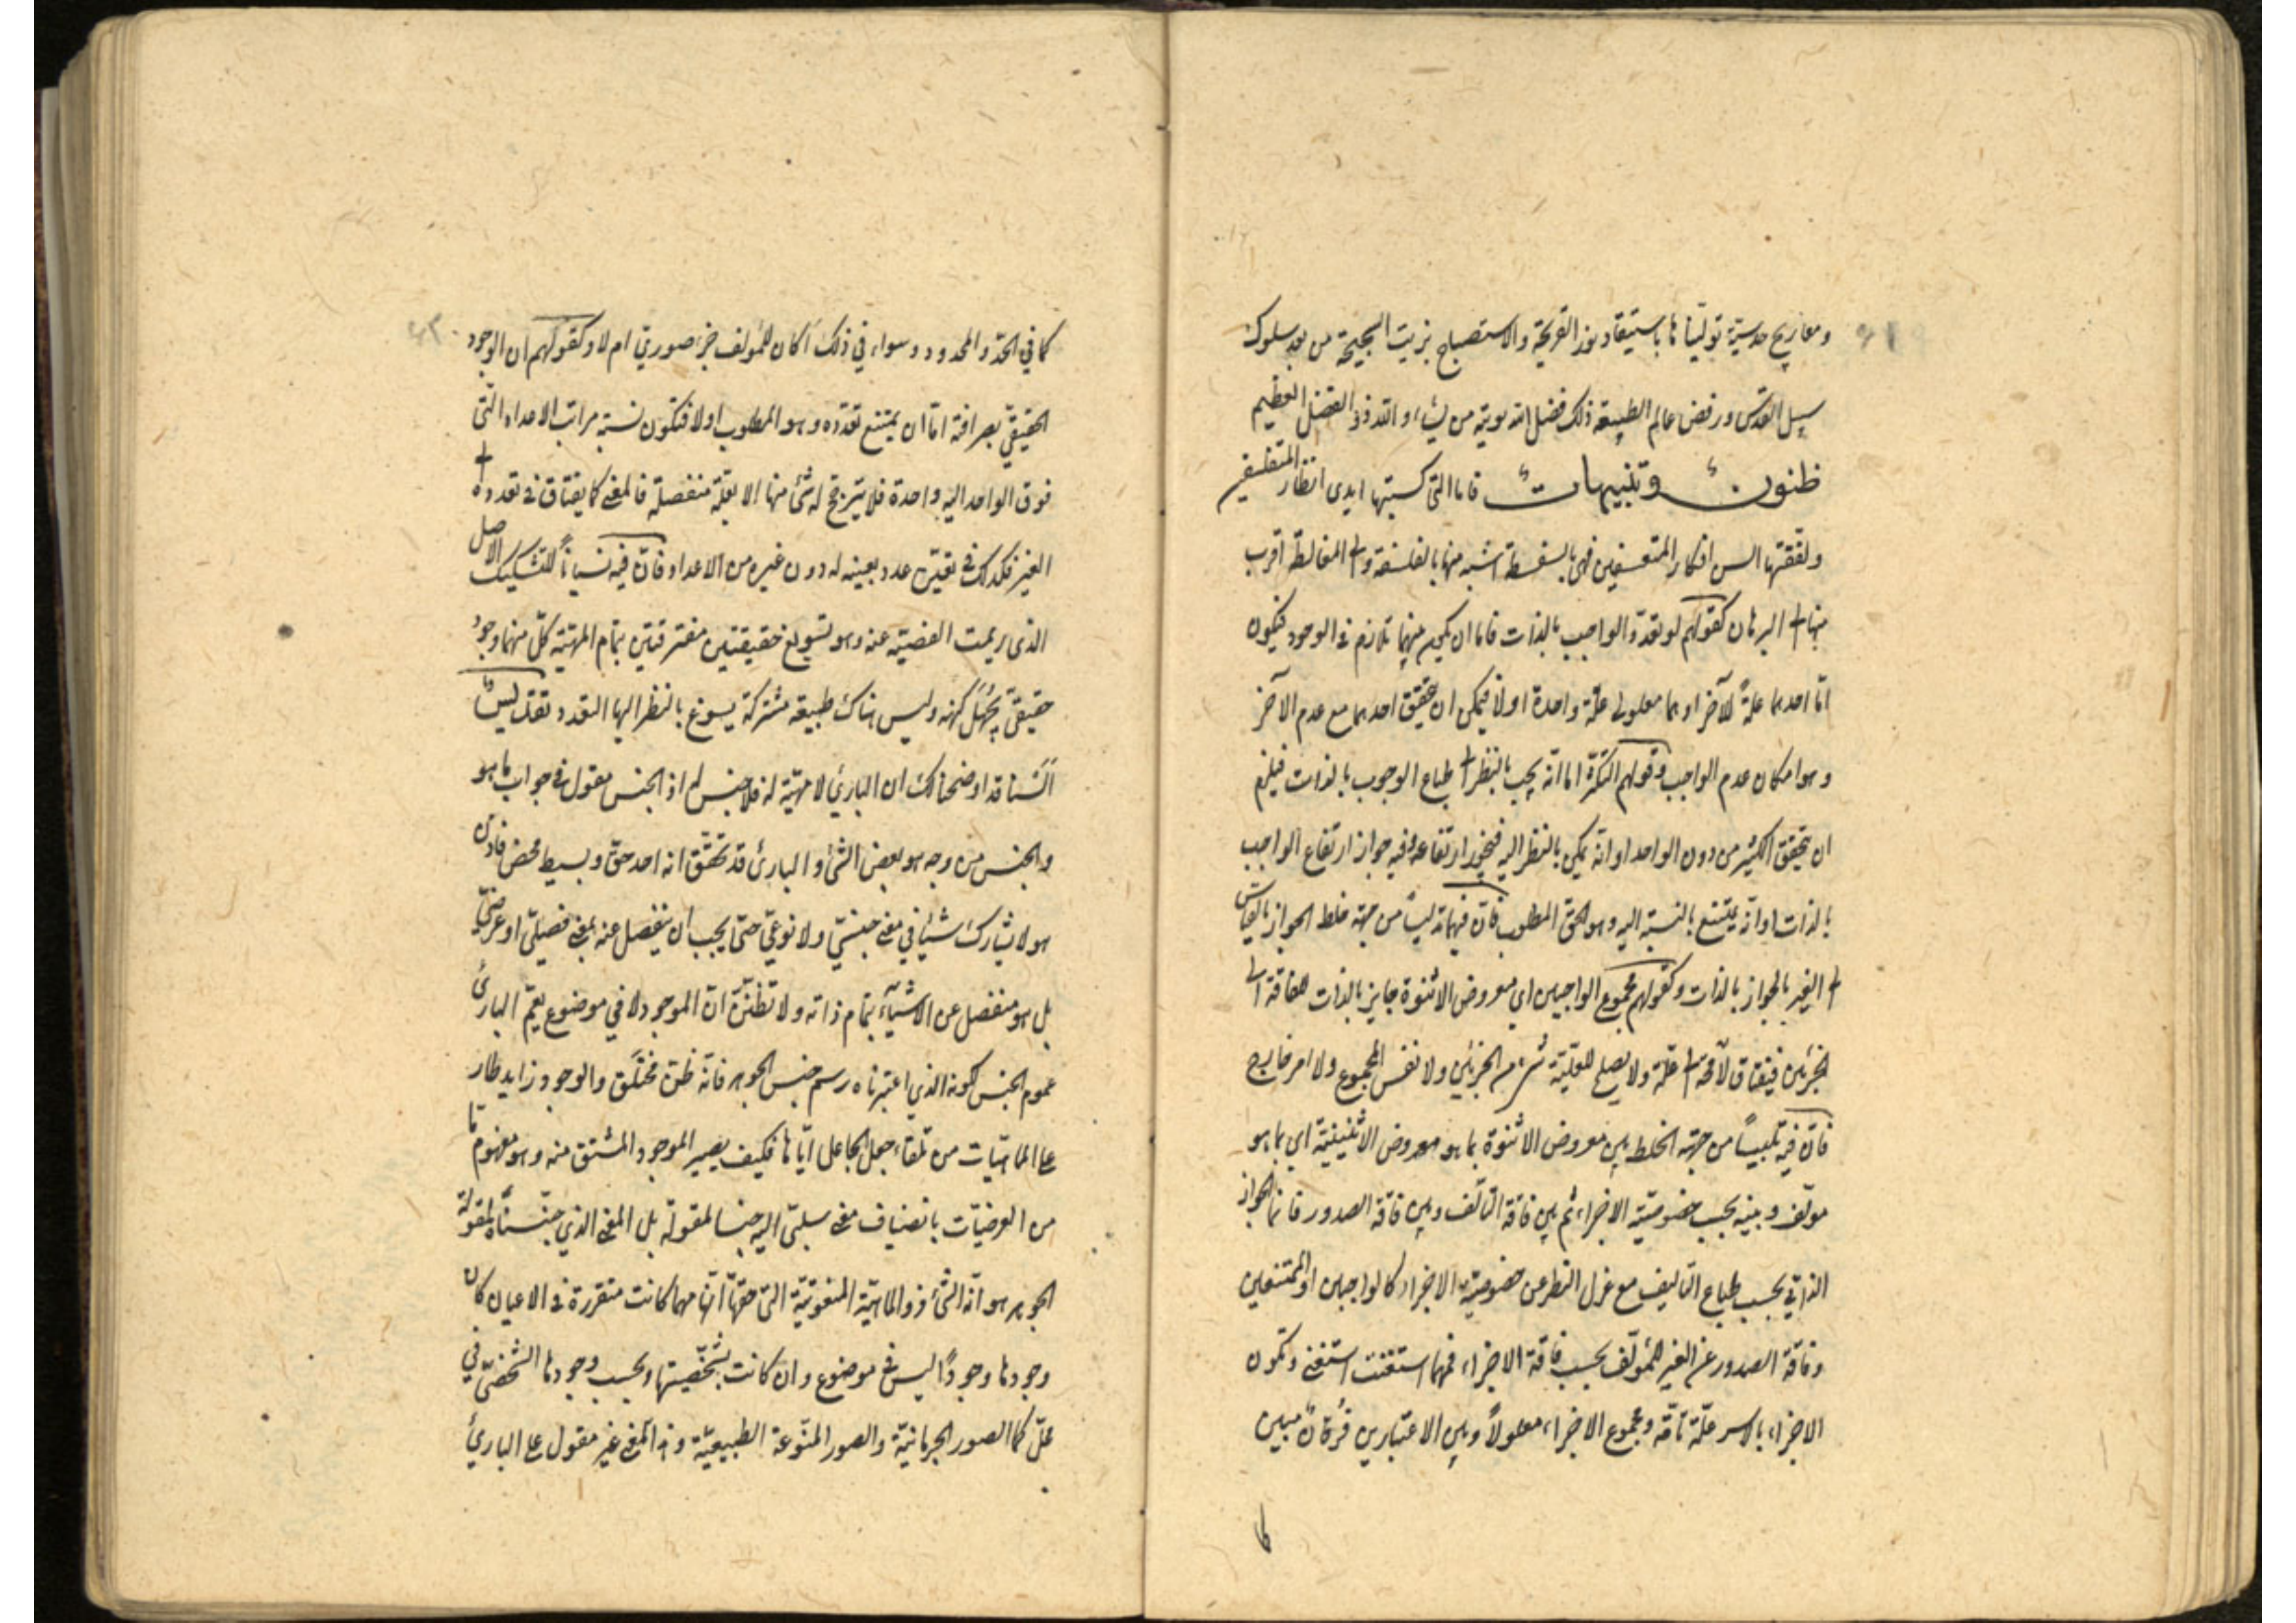 ومعاريج حدسية توليناها باستيقاد نور القريحة والاستصباح بزيت البجيحة من بعد سلوك
سبيل القدس ورفض عالم الطبيعة ذلك فضل الله يوتيه من يشاء والله ذو الفضل العظيم
ظنون وتنبيهات فاما التى كسبتها ايدى انظار المتفلسفين
ولفقتها السن افكار المتعسفين فهى بالسفسطة اشبه منها بالفلسفة والى المغالطة اقرب
منها الى البرهان كقولهم لو تعدد الواجب بالذات فاما ان يكون بينهما تلازم فى الوجود فيكون
امّا احدهما علةً للآخر او هما معلولى علّة واحدة اولا فيمكن ان يتحقق احدهما مع عدم الآخر
وهو امكان عدم الواجب وقولهم الكثرة اما انّه يجب بالنظر الى طباع الوجوب بالذات فيلزم
ان يتحقق الكثير من دون الواحد او انّه يمكن بالنظر اليه فيجوز ارتفاعه وفيه جواز ارتفاع الواجب
بالذات او انّه يمتنع بالنسبة اليه وهو الحق المطلوب فانّ فيهما تدليسًا من جهة خلط الجواز بالقياس
الى الغير بالجواز بالذات وكقولهم مجموع الواجبين اي معروض الاثنوة جايز بالذات لفاقته الى
الجزئين فيفتاق لا محة الى علّة ولا يصلح للعلّية شئ من الجزئين ولا نفس المجموع ولا امر خارج
فانّ فيه تلبيسًا من جهة الخلط بين معروض الاثنوة بما هو معروض الاثنينية اي بما هو
مولّف وبينه بحسب خصوصيّة الاجزاء ثم بين فاقة التألّف وبين فاقة الصدور فانما الجواز
الذاتي بحسب طباع التاليف مع عزل النظر عن خصوصية الاجزاء كالواجبين او الممتنعين
وفاقة الصدور عن الغير للمولّف بحسب فاقة الاجزاء فمهما استغنت استغنى وتكون
الاجزاء بالاسر علّة تامّة ومجموع الاجزاء معلولاً وبين الاعتبارين فرقان مبين
كما في الحدّ والمحدود وسواء في ذلك اكان للمولف جزء صوري ام لا وكقولهم ان الوجود
الحقيقيّ بصرافته امّا ان يمتنع تعدّده وهو المطلوب اولا فتكون نسبة مراتب الاعداد التى
فوق الواحد اليه واحدة فلا يترجح له شئ منها الا بعلّة منفصلة فالمعنى كما يفتاق فى تعدده الى
الغير فكذلك فى تعيّن عدد بعينه له دون غيره من الاعداد فانّ فيه نسيانًا للتشكيك الاصل
الذى ريمت الفصية عنه وهو تسويغ حقيقتين مفترقتين بتمام المهيّة كلّ منهما وجود
حقيقيّ يُجهل كنهه وليس هناك طبيعة مشتركة يسوغ بالنظر اليها التعدد تعقل ليسٌ
ألسنا قد اوضحنا لك ان البارئ لا مهيّة له فلا جنس له اذ الجنس مقول فى جواب ما هو
والجنس من وجه هو بعض الشئ والبارئ قد تحقّق انه احد حق وبسيط محض فاذن
هو لا يشارك شيئًا في معنى جنسيّ ولا نوعيّ حتّى يجب ان ينفصل عنه بمعنى فصليّ او عرضيّ
بل هو منفصل عن الاشيآء بتمام ذاته ولا تظننّ انّ الموجود لا في موضوع يعمّ البارئ
عموم الجنس لكونه الذي اعتبرناه رسم جنس الجوهر فانّه ظنّ مختلق والوجود زايد طار
على الماهيّات من تلقاء جعل الجاعل ايّاها فكيف يصير الموجود المشتق منه وهو مفهوم ما
من العرضيّات بانضياف معنى سلبيّ اليه جنسا لمقولة بل المعنى الذي جنّسناه لمقولة
الجوهر هو انّه الشئ ذو الماهيّة المنعوتيّة التى حقّها انّها مهما كانت متقررة فى الاعيان كان
وجودها وجودًا ليس فى موضوع وان كانت بشخصيّتها وبحسب وجودها الشخصيّ في
محلّ كما الصور الجرمانيّة والصور المنوّعة الطبيعيّة وهذا المعنى غير مقول على البارئ